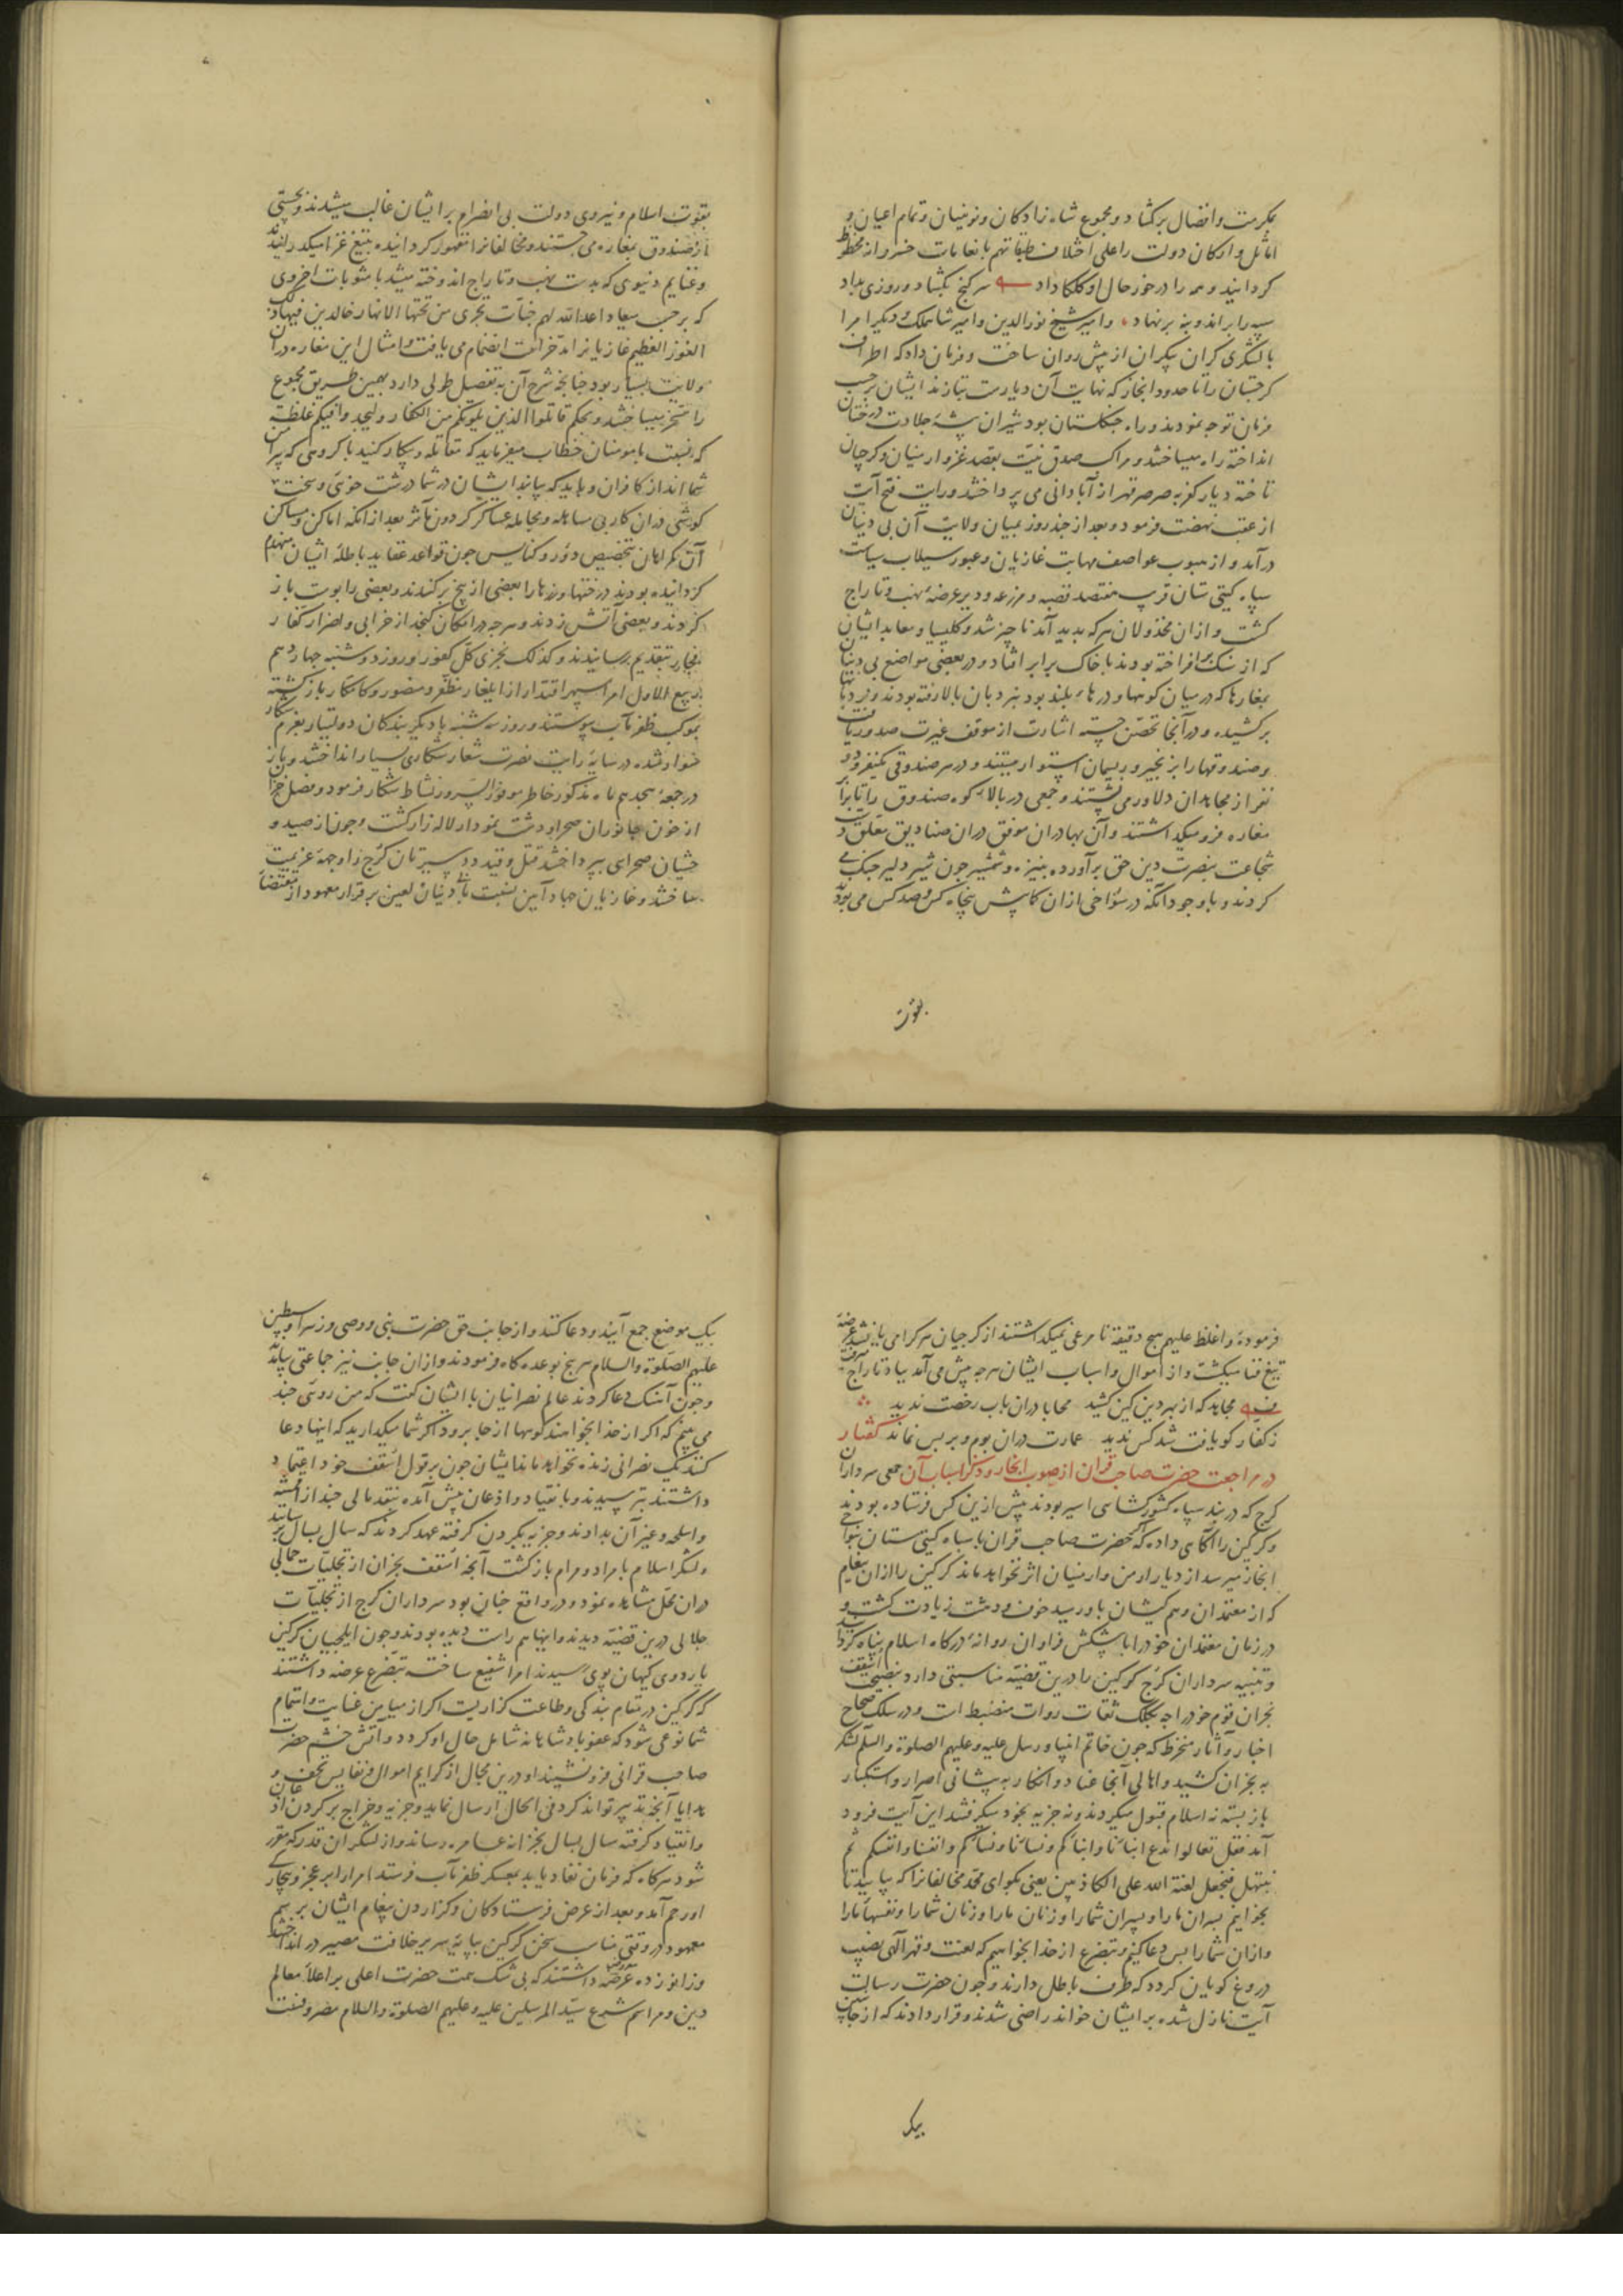 بمکرمت و افضال برکشاد و مجموع شاه زادکان و نوینیان و تمام اعیان و
اماثل و ارکان دولت را علی اختلاف طبقاتهم بانعامات خسروانه محظوظ
کردانید و همه را در خور حال او کلکا داد سر کنج بکشاد و روزی بداد
سپه را براند و بنه برنهاد و امیر شیخ نورالدین و امیر شاهملک و دیکر امرا
با لشکری کران بیکران از پیش روان ساخت و فرمان داد که اطراف
کرجستان را تا حدود ابخاز که نهایت آن دیارست بتازند ایشان برحسب
فرمان توجه نمودند و راه جنکلستان بود شیران بیشه جلادت درختان
انداخته راه میساختند و مراکب صدق نیت بقصد غزو ارمنیان و کرجیان
تاخته دیار کفر به صرصر قهر از آبادانی می پرداختند و رایت فتح آیت
از عقب نهضت فرمود و بعد از چند روز بمیان ولایت آن بی دینان
درآمد و از هبوب عواصف مهابت غازیان و عبور سیلاب سیاست
سپاه کیتی ستان قرب هفتصد قصبه و مزرعه و دیر عرضه نهب و تاراج
کشت و از ان مخذولان هر که بدید آمد ناچیز شد و کلیسا و معابد ایشان
که از سنک برافراخته بودند با خاک برابر افتاد و در بعضی مواضع بی دینان
بمغارها که در میان کوهها و درهاء بلند بود بنردبان بالا رفته بودند و نردبانها
برکشیده و در آنجا تحصن جسته اشارت از موقف غیرت صدور یافت
و صندوقها را بزنجیر و ریسمان استوار میبستند و در هر صندوقی یکنفر و دو
نفر از مجاهدان دلاور می نشستند و جمعی در بالاء کوه صندوق را تا برابر
مغاره فرو میکداشتند و آن بهادران موفق در ان صنادیق معلق دست
شجاعت بنصرت دین حق برآورده بنیزه و شمشیر چون شیر دلیر جنک می
کردند و با وجود آنکه در سوراخی از ان کابیش پنجاه کس و صد کس می بودند
بقوت
بقوت اسلام و نیروی دولت بی انصرام بر ایشان غالب میشدند و بچستی
از صندوق بمغاره می جستند و مخالفانرا مقهور کردانیده بتیغ غزا میکذرانیدند
و غنایم دنیوی که بدست نهب و تاراج اندوخته میشد با مثوبات اخروی
که بر حسب میعاد اعد الله لهم جنات تجری من تحتها الانهار خالدین فیها ذلک
الفوز العظیم غازیانرا مدخر است انضمام می یافت و امثال این مغاره در ان
ولایت بسیار بود چنانچه شرح آن به تفصیل طولی دارد بهمین طریق مجموع
را مسخر میساختند و بحکم قاتلوا الذین یلونکم من الکفار ولیجدوا فیکم غلظة
که نسبت با مومنان خطاب میفرماید که مقاتله و پیکار کنید با کروهی که پیرامن
شما اند از کافران و باید که بیابند ایشان در شما درشت خویی و سخت
کوشی در ان کار بی مساهله و مجامله عساکر کردون مآثر بعد از انکه اماکن و مساکن
آن کمراهان بتخصیص دور و کنایس چون قواعد عقاید باطله ایشان منهدم
کردانیده بودند درختها و رزها را بعضی از بیخ برکندند و بعضی را پوست باز
کردند و بعضی آتش زدند و هرچه در امکان کنجد از خرابی و اضرار کفار
فجار بتقدیم رسانیدند و کذلک نجزی کل کفور و روز دوشنبه چهاردهم
ربیع الاول امراء سپهر اقتدار از ایلغار مظفر و منصور و کامکار بازکشته
بموکب ظفرمآب پیوستند و روز سه شنبه با دیکر بندکان دولتیار بعزم شکار
سوار شده در سایه رایت نصرت شعار شکاری بسیار انداختند و باز
در جمعه هجدهم ماه مذکور خاطر موفور السرور نشاط شکار فرمود و فصل خزان
از خون جانوران صحرا و دشت نمودار لاله زار کشت و چون از صید و
حشیان صحرای بپرداختند قتل و قید دد سیرتان کرج را وجهه عزیمت
ساختند و غازیان جهاد آیین نسبت با بی دینان لعین بر قرار معهود از مقتضای
فرموده و اغلظ علیهم هیچ دقیقه نامرعی نمیکداشتند از کرجیان هر کرا می یافتند عرضه
تیغ فنا میکشت و از اموال و اسباب ایشان هرچه پیش می آمد بباد تاراج میرفت
مجاهد که از بهر دین کین کشید محابا در ان باب رخصت ندید
ز کفار کو یافت شد کس ندید عمارت در ان بوم و بر بس نماند کفتار
در مراجعت حضرت صاحب قران از صوب ابخاز و ذکر اسباب آن جمعی سرداران
کرج که در بند سپاه کشورکشای اسیر بودند پیش ازین کس فرستاده بودند
و کرکین را آکاهی داده که حضرت صاحب قران با سپاه کیتی ستان بنواحی
ابخاز میرسد از دیار ارمن و ارمنیان اثر نخواهد ماند کرکین را از ان پیغام
که از معتمدان و هم کیشان باو رسید خوف و دهشت زیادت کشت و
در زمان معتمدان خود را با پیشکش فراوان روانه درکاه اسلام پناه کردانید
و تنبیه سرداران کرج کرکین را درین قضیه مناسبتی دارد بنصیحت اسقف
نجران قوم خود را چه بنقل ثقات روات منضبط است و در سلک صحاح
اخبار و آثار منخرط که چون خاتم انبیا و رسل علیه و علیهم الصلوة والسلم لشکر
به نجران کشید و اهالی آنجا عناد و انکار به پیشانی اصرار و استکبار
باز بسته نه اسلام قبول میکردند و نه جزیه بخود میکرفتند این آیت فرود
آمد فقل تعالوا ندع ابناءنا و ابناءکم و نساءنا و نساءکم و انفسنا و انفسکم ثم
نبتهل فنجعل لعنة الله علی الکاذبین یعنی بکو ای محمد مخالفانرا که بیایید تا
بخوانیم پسران ما را و پسران شما را و زنان ما را و زنان شما را و نفسهاء ما را
و از ان شما را پس دعا کنیم و بتضرع از خدا بخواهیم که لعنت و قهر الهی نصیب
دروغ کویان کردد که طرف باطل دارند و چون حضرت رسالت
آیت نازل شده بر ایشان خواند راضی شدند و قرار دادند که از جانبین
بیک
بیک موضع جمع آیند و دعا کنند و از جانب حق حضرت نبی و وصی و زهرا و سبطین
علیهم الصلوة والسلام هر پنج بوعده کاه فرمودند و از ان جانب نیز جماعتی بیامدند
و چون آهنک دعا کردند عالم نصرانیان با ایشان کفت که من رویی چند
می بینم که اکر از خدا بخواهند کوهها از جا برود اکر شما میکذارید که اینها دعا
کنند یک نصرانی زنده نخواهد ماند ایشان چون بر قول اسقف خود اعتماد
داشتند بترسیدند و بانقیاد و اذعان پیش آمده بنقد مالی چند از اقمشه
و اسلحه و غیر آن بدادند و جزیه بکردن کرفته عهد کردند که سال بسال برسانند
و لشکر اسلام با مراد و مرام بازکشت آنچه اسقف نجران از تجلیات جمالی
در ان محل مشاهده نمود و در واقع چنان بود سرداران کرج از تجلیات
جلالی درین قضیه دیدند و اینها هم راست دیده بودند و چون ایلچیان کرکین
باردوی کیهان پوی رسیدند امرا را شفیع ساخته بتضرع عرضه داشتند
که کرکین در مقام بندکی و طاعت کزاریست اکر از میامن عنایت و اهتمام
شما نوعی شود که عفو پادشاهانه شامل حال او کردد و آتش خشم حضرت
صاحب قرانی فرو نشیند او درین مجال از کرایم اموال و نفایس تحف و
هدایا آنچه تدبیر تواند کرد فی الحال ارسال نماید و جزیه و خراج بر کردن اذعان
و انقیاد کرفته سال بسال بخزانه عامره رساند و از لشکر ان قدر که مقرر
شود هر کاه که فرمان نفاد یابد بمعسکر ظفرمآب فرستد امرا را بر عجز و بیچارکی
او رحم آمد و بعد از عرض فرستادکان و کزاردن پیغام ایشان بر رسم
معهود در وقتی مناسب سخن کرکین بپایه سریر خلافت مصیر در انداختند
و زانو زده عرضه داشتند که بی شک همت حضرت اعلی بر اعلاء معالم
دین و مراسم شرع سید المرسلین علیه و علیهم الصلوة والسلام مصروفست